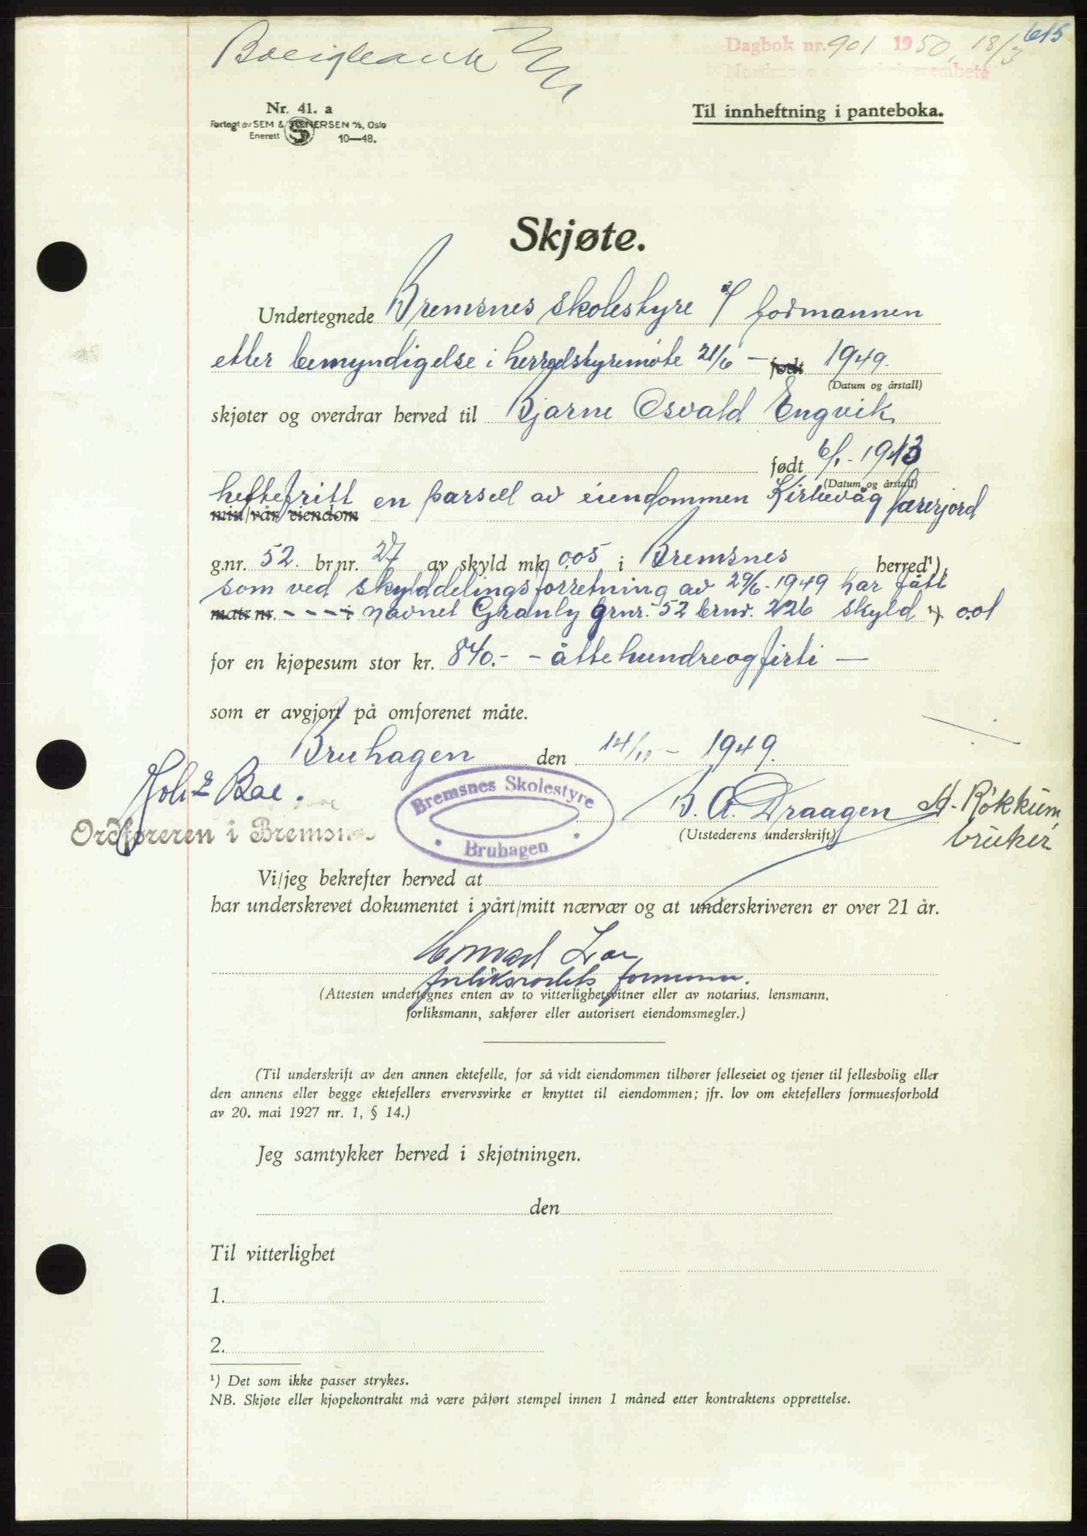 615
Dagbok nr. 901 1950, 18/3
Nr. 41. a
Forlagt av SEM & STENERSEN A/S, Oslo
Enerett 10—48.
Til innheftning i panteboka.
Skjøte.
Undertegnede Bremsnes skolestyre v/ formannen
etter bemyndigelse i herredstyremøte 21/6 - født 1949.
(Datum og årstall)
skjøter og overdrar herved til Bjarne Osvald Engvik
født 6/1- 1913
(Datum og årstall)
heftefritt en parsell av eiendommen Kirkevåg
min/vår eiendom
g.nr. 52. br.nr. 27 av skyld mk 0.05 i Bremsnes herred¹),
som ved skylddelingsforretning av 29/6-1949 har fått
matr.nr. - - - - i navnet Granly grnr. 52 brnr. 226 skyld ¹) 0.01
for en kjøpesum stor kr. 840.- - åttehundreogfirti —
som er avgjort på omforenet måte.
Bruhagen den 14/11- 1949.
Joh Boe.
Ordføreren i Bremsnes
Bremsnes Skolestyre
Bruhagen
B. A. Draagen
Røkkum
bruker
(Utstederens underskrift)
Vi/jeg bekrefter herved at
har underskrevet dokumentet i vårt/mitt nærvær og at underskriveren er over 21 år.
forliksrådets formann.
(Attesten undertegnes enten av to vitterlighetsvitner eller av notarius, lensmann,
forliksmann, sakfører eller autorisert eiendomsmegler.)
(Til underskrift av den annen ektefelle, for så vidt eiendommen tilhører felleseiet og tjener til fellesbolig eller
den annens eller begge ektefellers ervervsvirke er knyttet til eiendommen; jfr. lov om ektefellers formuesforhold
av 20. mai 1927 nr. 1, § 14.)
Jeg samtykker herved i skjøtningen.
den
Til vitterlighet
1.
2.
¹) Det som ikke passer strykes.
NB. Skjøte eller kjøpekontrakt må være påført stempel innen 1 måned etter kontraktens opprettelse.